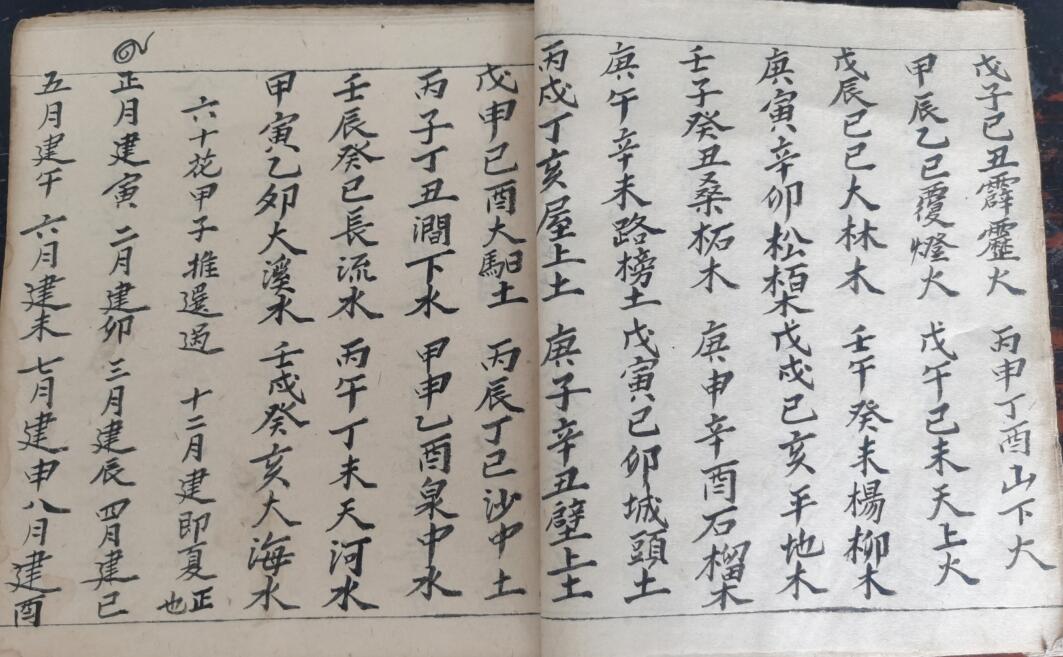 戊子己丑霹靂火 丙申丁酉山下火
甲辰乙巳覆燈火 戊午己未天上火
戊辰己巳大林木 壬午癸未楊柳木
庚寅辛卯松栢木 戊戌己亥平地木
壬子癸丑桑柘木 庚申辛酉石榴木
庚午辛未路榜土 戊寅己卯城頭土
丙戌丁亥屋上土 庚子辛丑壁上土
戊申己酉大馹土 丙辰丁巳沙中土
丙子丁丑澗下水 甲申乙酉泉中水
壬辰癸巳長流水 丙午丁未天河水
甲寅乙卯大溪水 壬戌癸亥大海水
六十花甲子推還過 十二月建即夏正也
正月建寅 二月建卯 三月建辰 四月建巳
五月建午 六月建未 七月建申 八月建酉